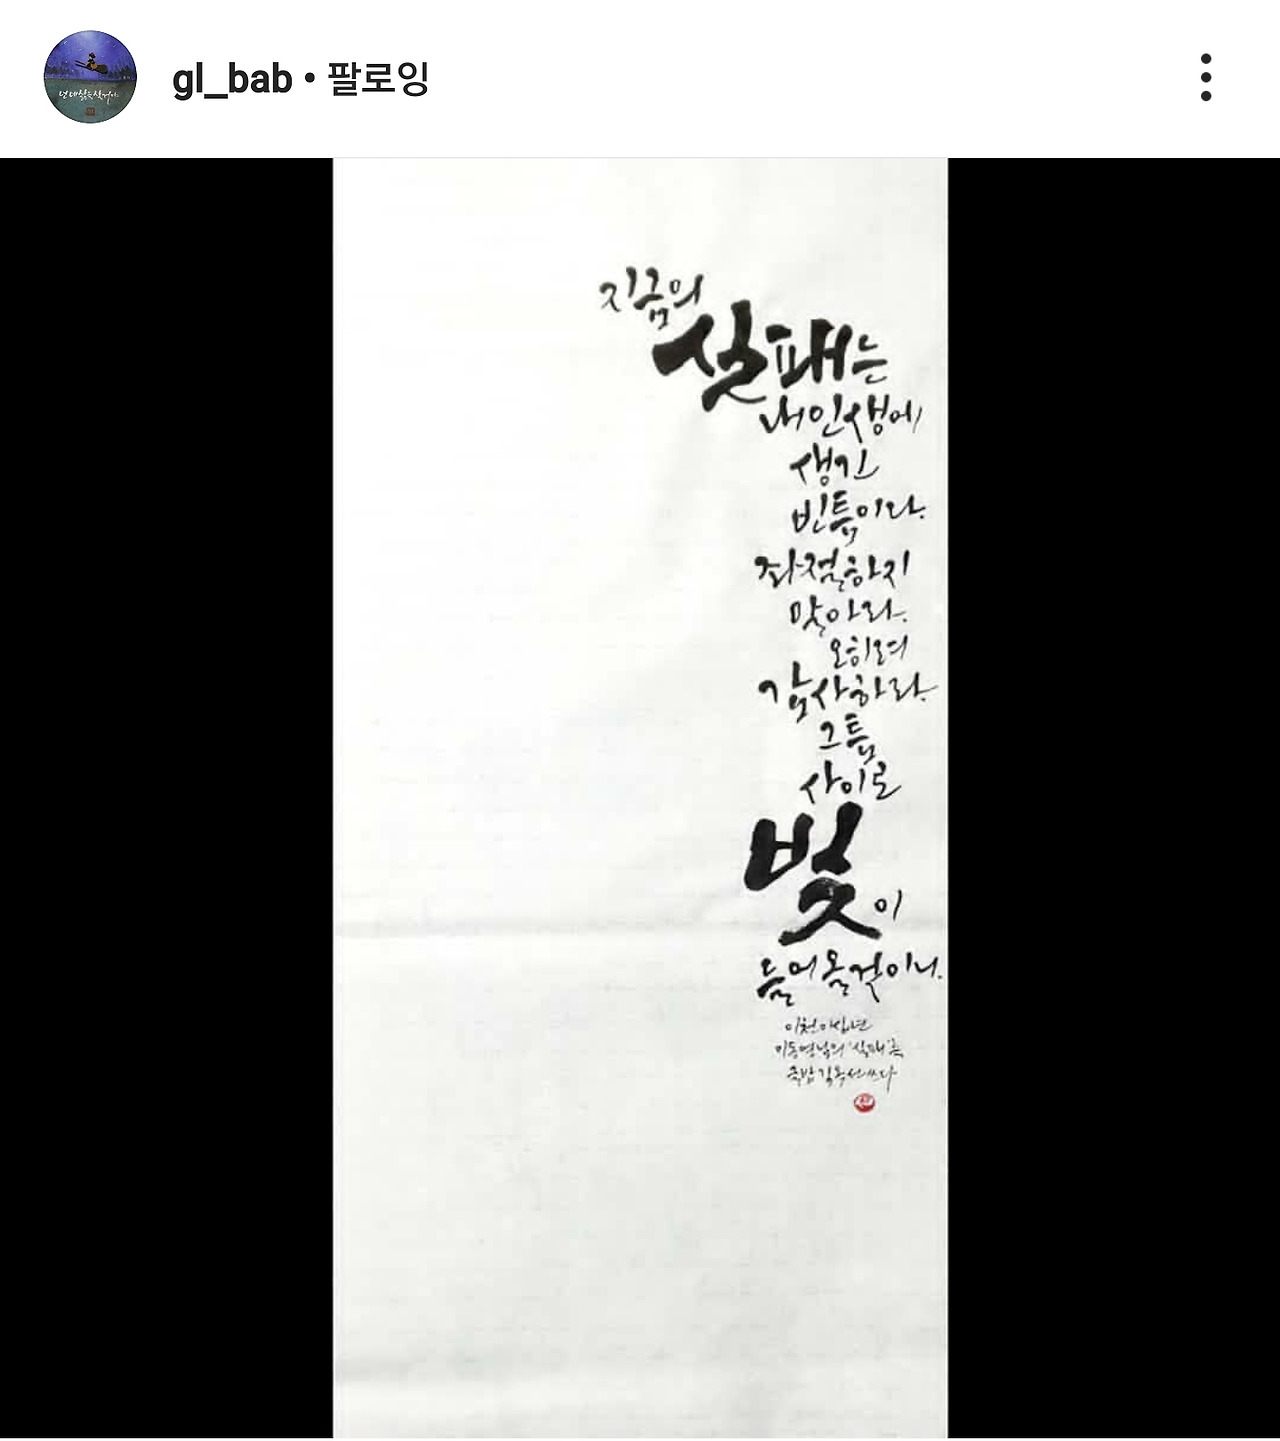 gl_bab • 팔로잉
지금의
실패는
내 인생에
생긴
빈틈이라.
좌절하지
말아라.
오히려
감사하라.
그 틈
사이로
빛이
들어올 것이니.
이천이십년
이동영님의 '실패'를
김옥선 쓰다